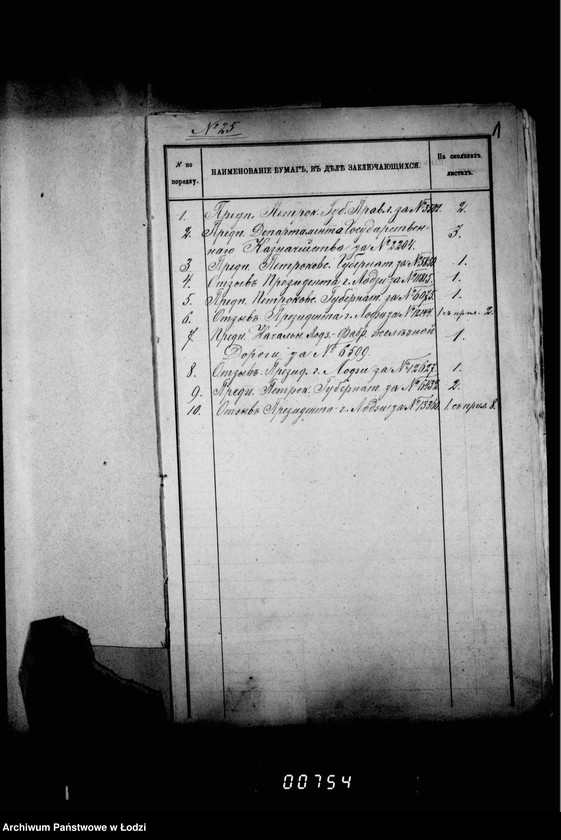 № 25
1
№ по порядку.
НАИМЕНОВАНІЕ БУМАГЪ, ВЪ ДѢЛѢ ЗАКЛЮЧАЮЩИХСЯ.
На сколькихъ листахъ.
1. Предп. Петрок. Губ. Правл. за № 2.
2. Предп. Департамента Государствен-
наго Казначейства за № 2204. 3.
3. Предп. Петроковс. Губернат. за № 1.
4. Отзывъ Президента г. Лодзи за № 1.
5. Предп. Петроковс. Губернат. за № 1.
6. Отзывъ Президента г. Лодзи за № 12144. 1 съ прил. 2.
7. Предп. Начальн. Лодз.-Фабр. желѣзной
Дороги за № 6509. 1.
8. Отзывъ Презид. г. Лодзи за № 12927. 1.
9. Предп. Петрок. Губернат. за № 2.
10. Отзывъ Президента г. Лодзи за № 1 съ прил. 8.
00754
Archiwum Państwowe w Łodzi